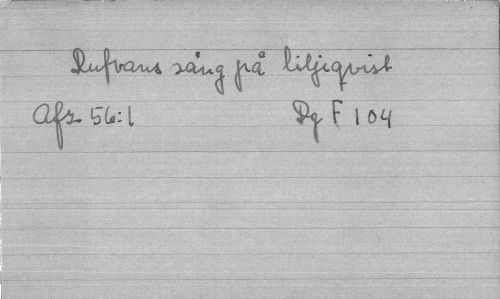 Dufvans sång på liljeqvist
Afz. 56:1 Dg F 104